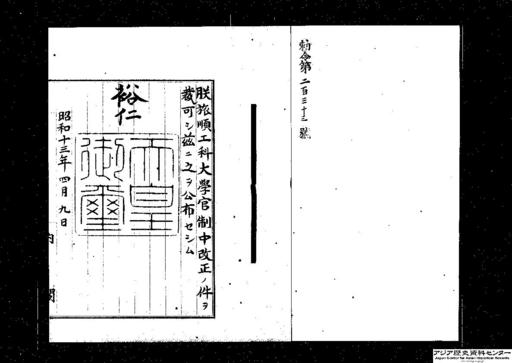 勅令第二百三十二號
朕旅順工科大學官制中改正ノ件ヲ
裁可シ茲ニ之ヲ公布セシム
裕仁
天皇御璽
昭和十三年四月九日
内閣
アジア歴史資料センター
Japan Center for Asian Historical Records